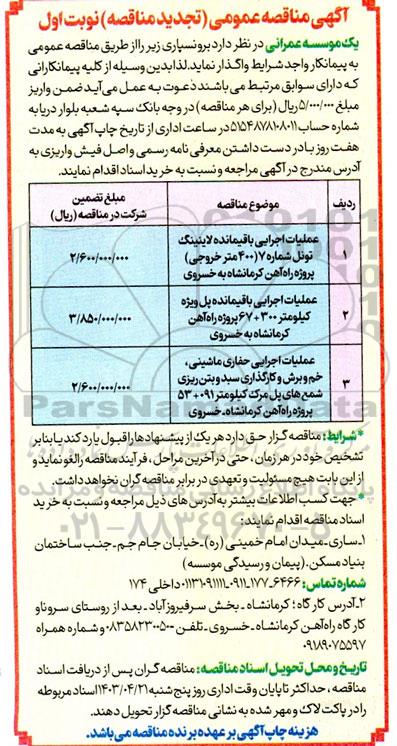 آگهی مناقصه عمومی (تجدید مناقصه) نوبت اول
یک موسسه عمرانی در نظر دارد برونسپاری زیر را از طریق مناقصه عمومی
به پیمانکار واجد شرایط واگذار نماید. لذا بدین وسیله از کلیه پیمانکارانی
که دارای سوابق مرتبط می باشند دعوت به عمل می آید ضمن واریز
مبلغ ۵/۰۰۰/۰۰۰ ریال (برای هر مناقصه) در وجه بانک سپه شعبه بلوار دریا به
شماره حساب ۵۱۵۴۸۷۸۱۰۸۰۱۱ در ساعت اداری از تاریخ چاپ آگهی به مدت
هفت روز با در دست داشتن معرفی نامه رسمی و اصل فیش واریزی به
آدرس مندرج در آگهی مراجعه و نسبت به خرید اسناد اقدام نمایند.
ردیف موضوع مناقصه مبلغ تضمین
شرکت در مناقصه (ریال)
۱ عملیات اجرایی باقیمانده لاینینگ
تونل شماره ۷ (۴۰۰ متر خروجی) ۲/۶۰۰/۰۰۰/۰۰۰
پروژه راه آهن کرمانشاه به خسروی
عملیات اجرایی باقیمانده پل ویژه
۲ کیلومتر ۳۰۰+۶۷ پروژه راه آهن ۳/۸۵۰/۰۰۰/۰۰۰
کرمانشاه به خسروی
عملیات اجرایی حفاری ماشینی،
۳ خم و برش و کارگذاری سبد و بتن ریزی ۲/۶۰۰/۰۰۰/۰۰۰
شمع های پل مرک کیلومتر ۰۹۱+۵۳
پروژه راه آهن کرمانشاه-خسروی
*شرایط: مناقصه گزار حق دارد هر یک از پیشنهادها را قبول یا رد کند یا بنابر
تشخیص خود در هر زمان، حتی در آخرین مراحل، فرآیند مناقصه را لغو نماید و
از این بابت هیچ مسئولیت و تعهدی در برابر مناقصه گران نخواهد داشت.
*جهت کسب اطلاعات بیشتر به آدرس های ذیل مراجعه و نسبت به خرید
اسناد مناقصه اقدام نمایند:
۱-ساری-میدان امام خمینی (ره)-خیابان جام جم-جنب ساختمان
بنیاد مسکن. (پیمان و رسیدگی موسسه)
شماره تماس: ۶۴۶۶-۱۷۷-۰۹۱۱-۰۱۱۳۱۰۹۱۱۱ داخلی ۱۷۴
۲-آدرس کارگاه: کرمانشاه - بخش سرفیروزآباد - بعد از روستای سرونا و
کارگاه راه آهن کرمانشاه - خسروی - تلفن ۰۸۳۵۸۲۳۰۰۵۰۰ و شماره همراه
۰۹۱۸۹۰۷۵۵۹۷
تاریخ و محل تحویل اسناد مناقصه: مناقصه گران پس از دریافت اسناد
مناقصه، حداکثر تا پایان وقت اداری روز پنج شنبه ۱۴۰۳/۰۴/۲۱ اسناد مربوطه
را در پاکت لاک و مهر شده به نشانی مناقصه گزار تحویل دهند.
هزینه چاپ آگهی بر عهده برنده مناقصه می باشد.
ParsNamadData
۰۲۱-۸۸۳۴۹۶۷۰-۵